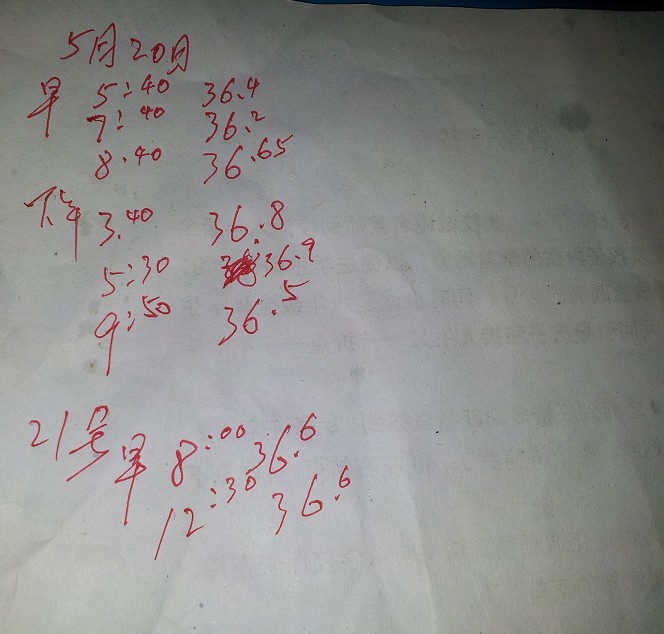 5月20日
早 5:40 36.4
7:40 36.2
8.40 36.65
下午 3.40 36.8
5:30 36.9
9:50 36.5
21号 早 8:00 36.6
12:30 36.6